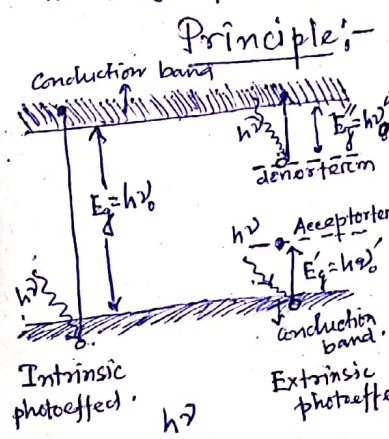 Principle:-
Conduction band
hν
Eg'=hν0'
denorterm
Eg=hν0
hν
Acceptorter
Eg'=hν0'
hν
conduction
band.
Intrinsic
photoeffect.
Extrinsic
photoeffe
hν